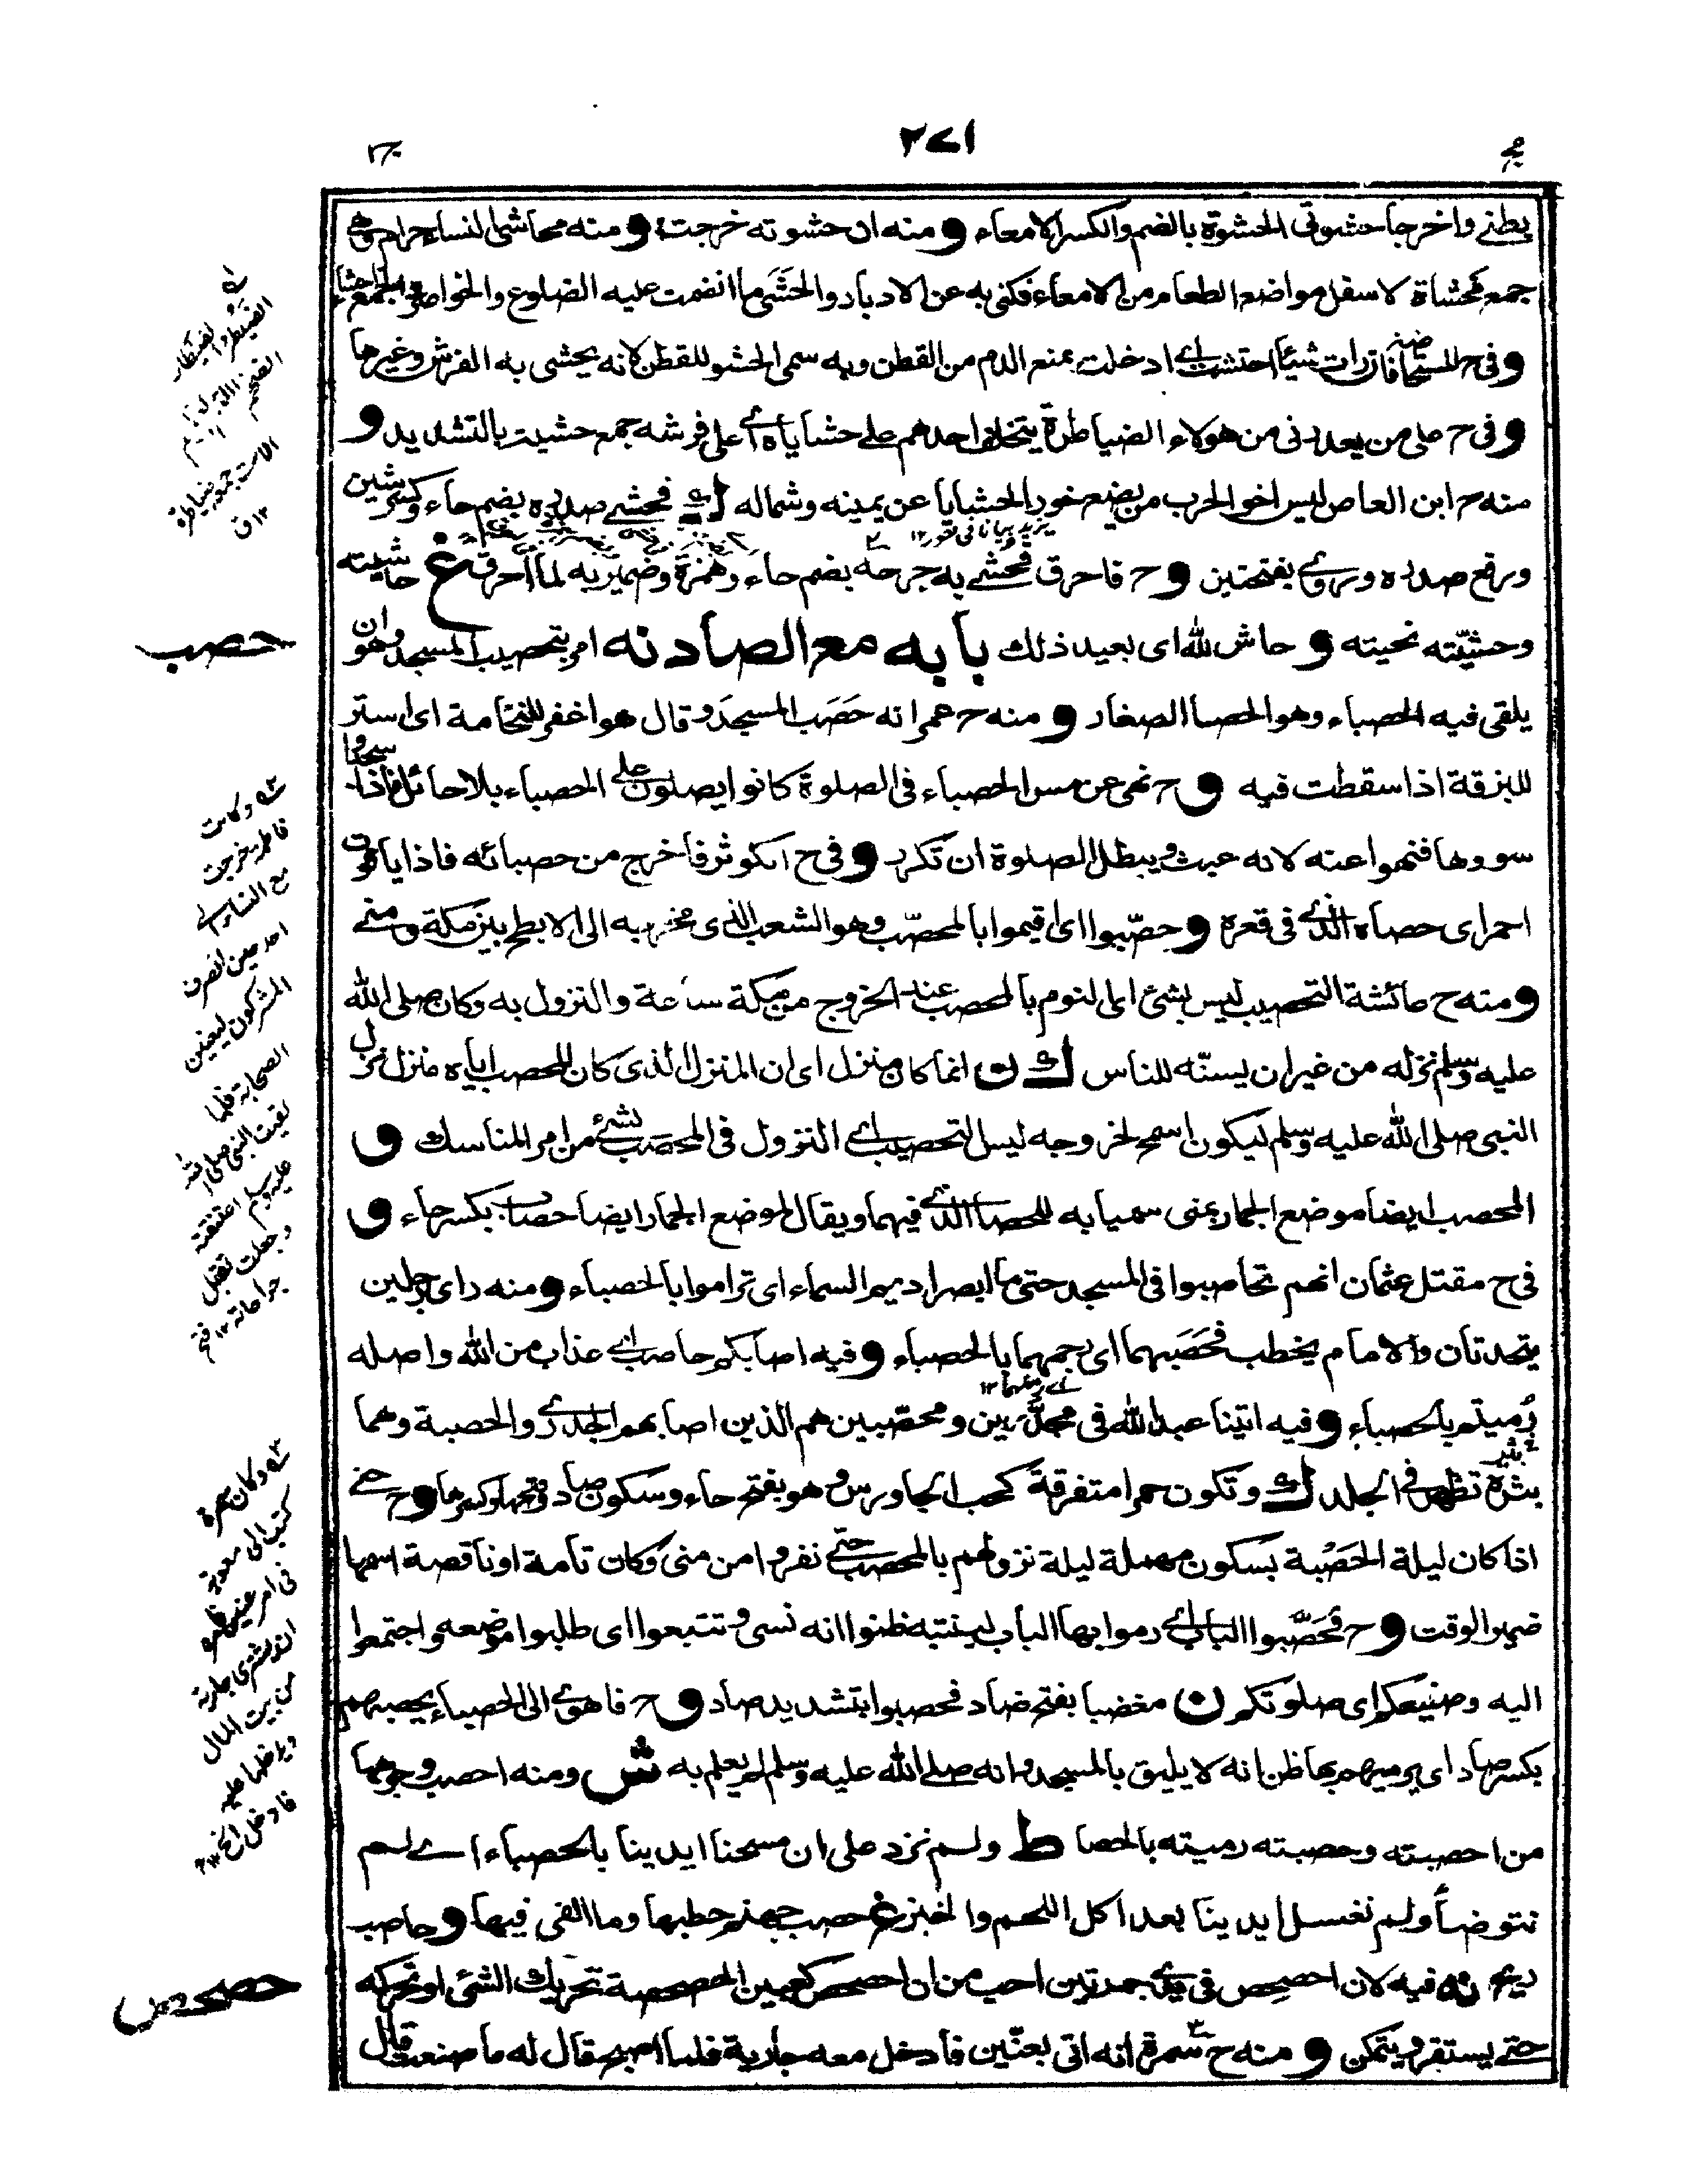 ٢٧١
بطني واخرجا حشوتي الحشوة بالضم والكسر الامعاء و منه ان حشوته خرجت و منه محاشي النساء حرام وهي
جمع محشاة لاسفل مواضع الطعام من الامعاء فكني به عن الادبار والحشي ما انضمت عليه الضلوع والخواصر والجمع احشاء
و في ح المستحاضة فان رات شيئا احتشت اي ادخلت بمنع الدم من القطن وبه سمي الحشو للقطن لانه يحشى به الفرش وغيرها
و في ح علي من يعذرني من هولاء الضياطرة يتخلف احدهم على حشاياه اي على فرشه جمع حشية بالتشديد و
منه ح ابن العاص ليس اخو الحرب من يضع خور الحشايا عن يمينه وشماله ك فحشي صدره بضم حاء وكسر شين
ورفع صدره ويروي بفتحتين و ح فاحرق فحشي به جرحه بضم حاء وهمزة وضمير به لما احرق غ حاشيته
وحشّيته نحيته و حاش لله اى بعيد ذلك بابه مع الصاد نه امر بتحصيب المسجد وهو ان
حصب
يلقى فيه الحصباء وهو الحصا الصغار و منه ح عمر انه حَصَب المسجد وقال هو اغفر للنخامة اى استر
للبزقة اذا سقطت فيه و ح نهى عن مس الحصباء في الصلوة كانوا يصلون على الحصباء بلا حائل فاذا سجدوا
سووها فنهوا عنه لانه عبث ويبطل الصلوة ان تكرر و في ح الكوثر فاخرج من حصبائه فاذا ياقوت
احمر اى حصاه الذي في قعره و حصّبوا اى اقيموا بالمحصّب وهو الشعب الذى مخرجه الى الابطح بين مكة ومنى
و منه ح عائشة التحصيب ليس بشئ اى النوم بالمحصب عند الخروج من مكة ساعة والنزول به وكان صلى الله
عليه وسلم نزله من غير ان يسنّه للناس ك ن انما كان منزل اى ان المنزل الذى كان المحصب اياه منزل نزل
النبي صلى الله عليه وسلم ليكون اسمح لخروجه ليس التحصيب اي النزول في المحصب بشئ من امر المناسك و
المحصب ايضا موضع الجمار بمنى سميا به للحصا الذي فيهما ويقال لموضع الجمار ايضا حصاب بكسر حاء و
في ح مقتل عثمان انهم تحاصبوا في المسجد حتى ما ابصر اديم السماء اى تراموا بالحصباء و منه راى رجلين
يتحدثان والامام يخطب فحَصَبهما اى رجمهما بالحصباء و فيه اصابكم حاصب اي عذاب من الله واصله
رُميتم بالحصباء و فيه اتينا عبد الله في مجدّرين ومحصّبين هم الذين اصابهم الجدري والحصبة وهما
بثرة تظهر في الجلد ك وتكون حمرا متفرقة كحب الجاورس وهو بفتح حاء وسكون صاد وفتحها وكسرها و ح حتى
اذا كان ليلة الحَصْبة بسكون مهملة ليلة نزولهم بالمحصب حتى نفروا من منى وكان تامة او ناقصة اسمها
ضمير الوقت و ح فحَصَّبوا الباب اي رموا بها الباب لينتبه ظنوا انه نسى وتتبعوا اى طلبوا موضعه واجتمعوا
اليه وصنيعكم اى صلوتكم ن مغضبا بفتح ضاد فحصبوا بتشديد صاد و ح فاهوى الى الحصباء يحصبهم
بكسر صاد اى يرميهم بها ظن انه لا يليق بالمسجد وانه صلى الله عليه وسلم لم يعلم به ش ومنه احصب وجوهها
من احصبته وحصبته رميته بالحصا ط ولم نزد على ان مسحنا ايدينا بالحصباء اي لم
نتوضأ ولم نغسل ايدينا بعد اكل اللحم والخبز غ حصب جهنم حطبها وما القى فيها و حاصب
ريح نه فيه لان احصحص في يدي جمرتين احب من ان احصحص كعبين الحصحصة تحريك الشئ او تحركه
حصحص
حتى يستقر ويتمكن و منه ح سمرة انه اتى بعنّين فادخل معه جارية فلما اصبح قال له ما صنعت قال
وكانت
فاطمة خرجت
مع النساء الى
احد حين انصرف
المشركون ليعينن
الصحابة فلما
لقيت النبى صلى الله
عليه وسلم اعتنقته
وجعلت تغسل
جراحاته ١٢ فتح
وكان سمرة
كتب الى معوية
في امر عنين فامره
ان يشترى جارية
من بيت المال
ويدخلها عليه
فادخل الخ ١٢